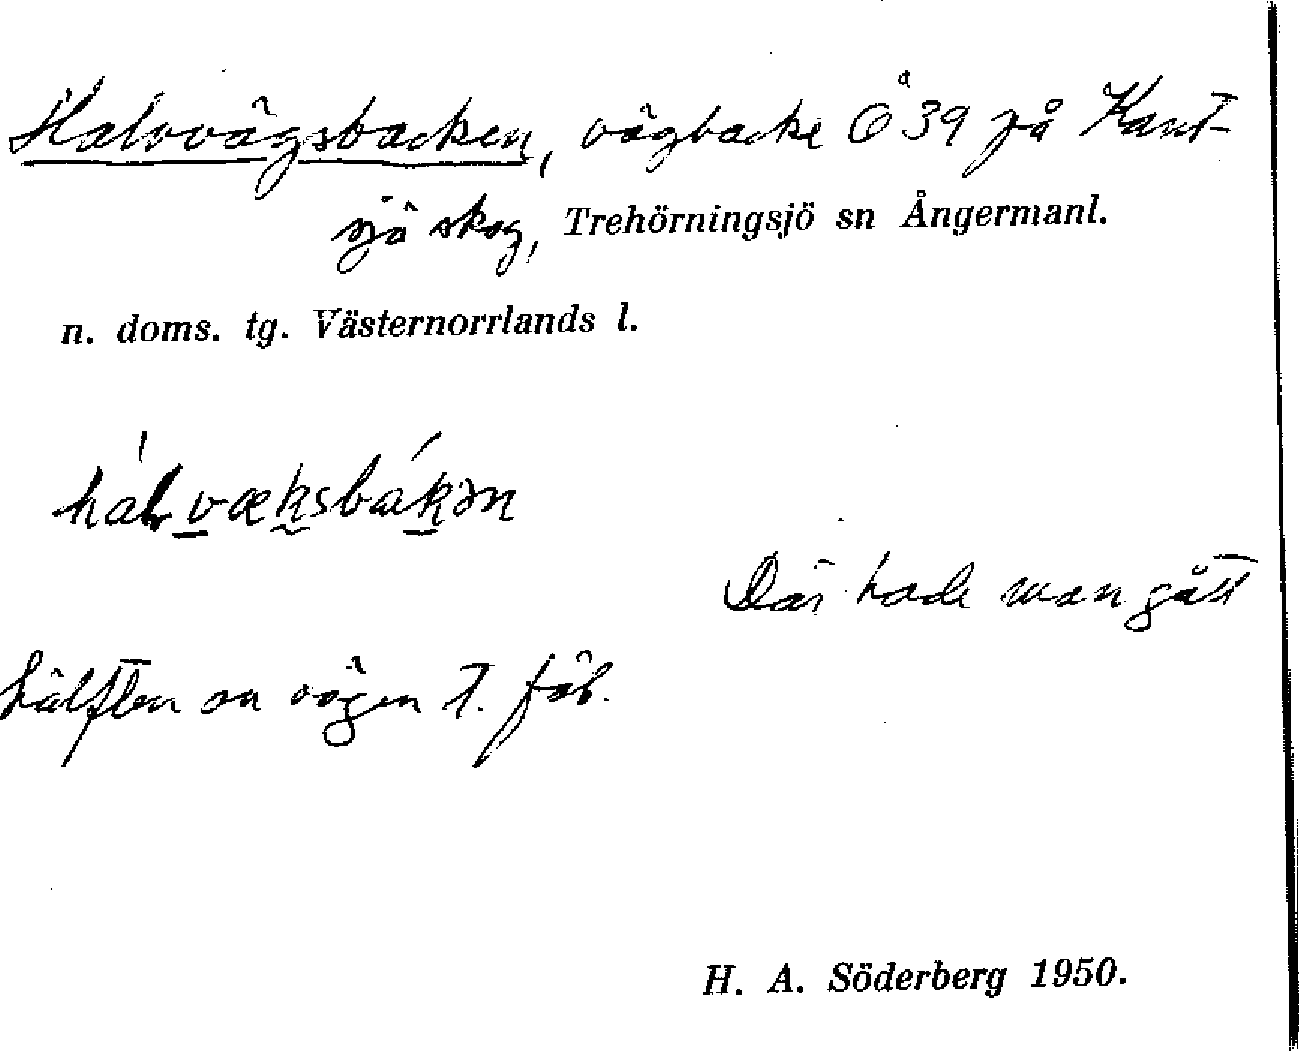 Halvvägsbacken, vägbacke Ö 39 på Kant-
sjö skog, Trehörningsjö sn Ångermanl.
n. doms. tg. Västernorrlands l.
Där hade man gått
hälften av vägen t. fäb.
H. A. Söderberg 1950.